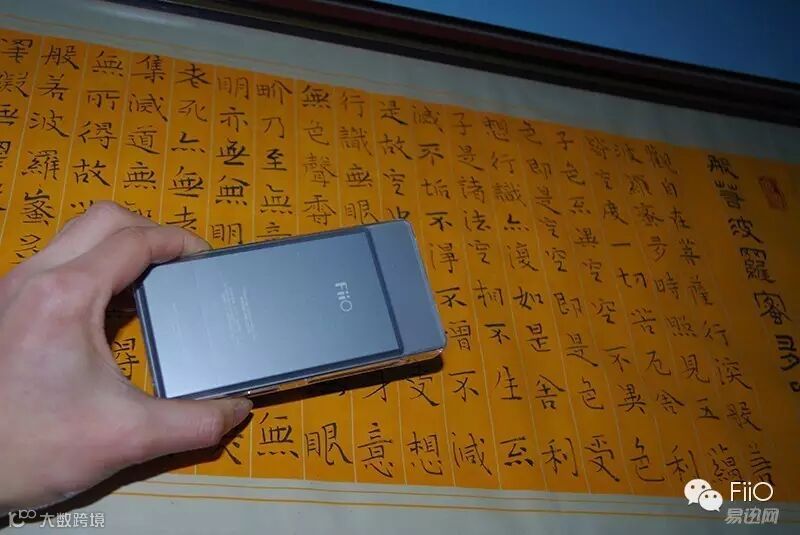 般若波羅蜜多心
觀自在菩薩行深般若
波羅蜜多時照見五蘊
皆空度一切苦厄舍利
子色不異空空不異色
色即是空空即是色受
想行識亦復如是舍利
子是諸法空相不生不
滅不垢不淨不增不減
是故空中 受想
行識無眼 意
無色聲香 眼
界乃至無 無
明亦無無明
老死亦無老
集滅道無
無所得故 得
般若波羅蜜多
罣礙無罣
FiiO
FiiO
易迅网
大数跨境